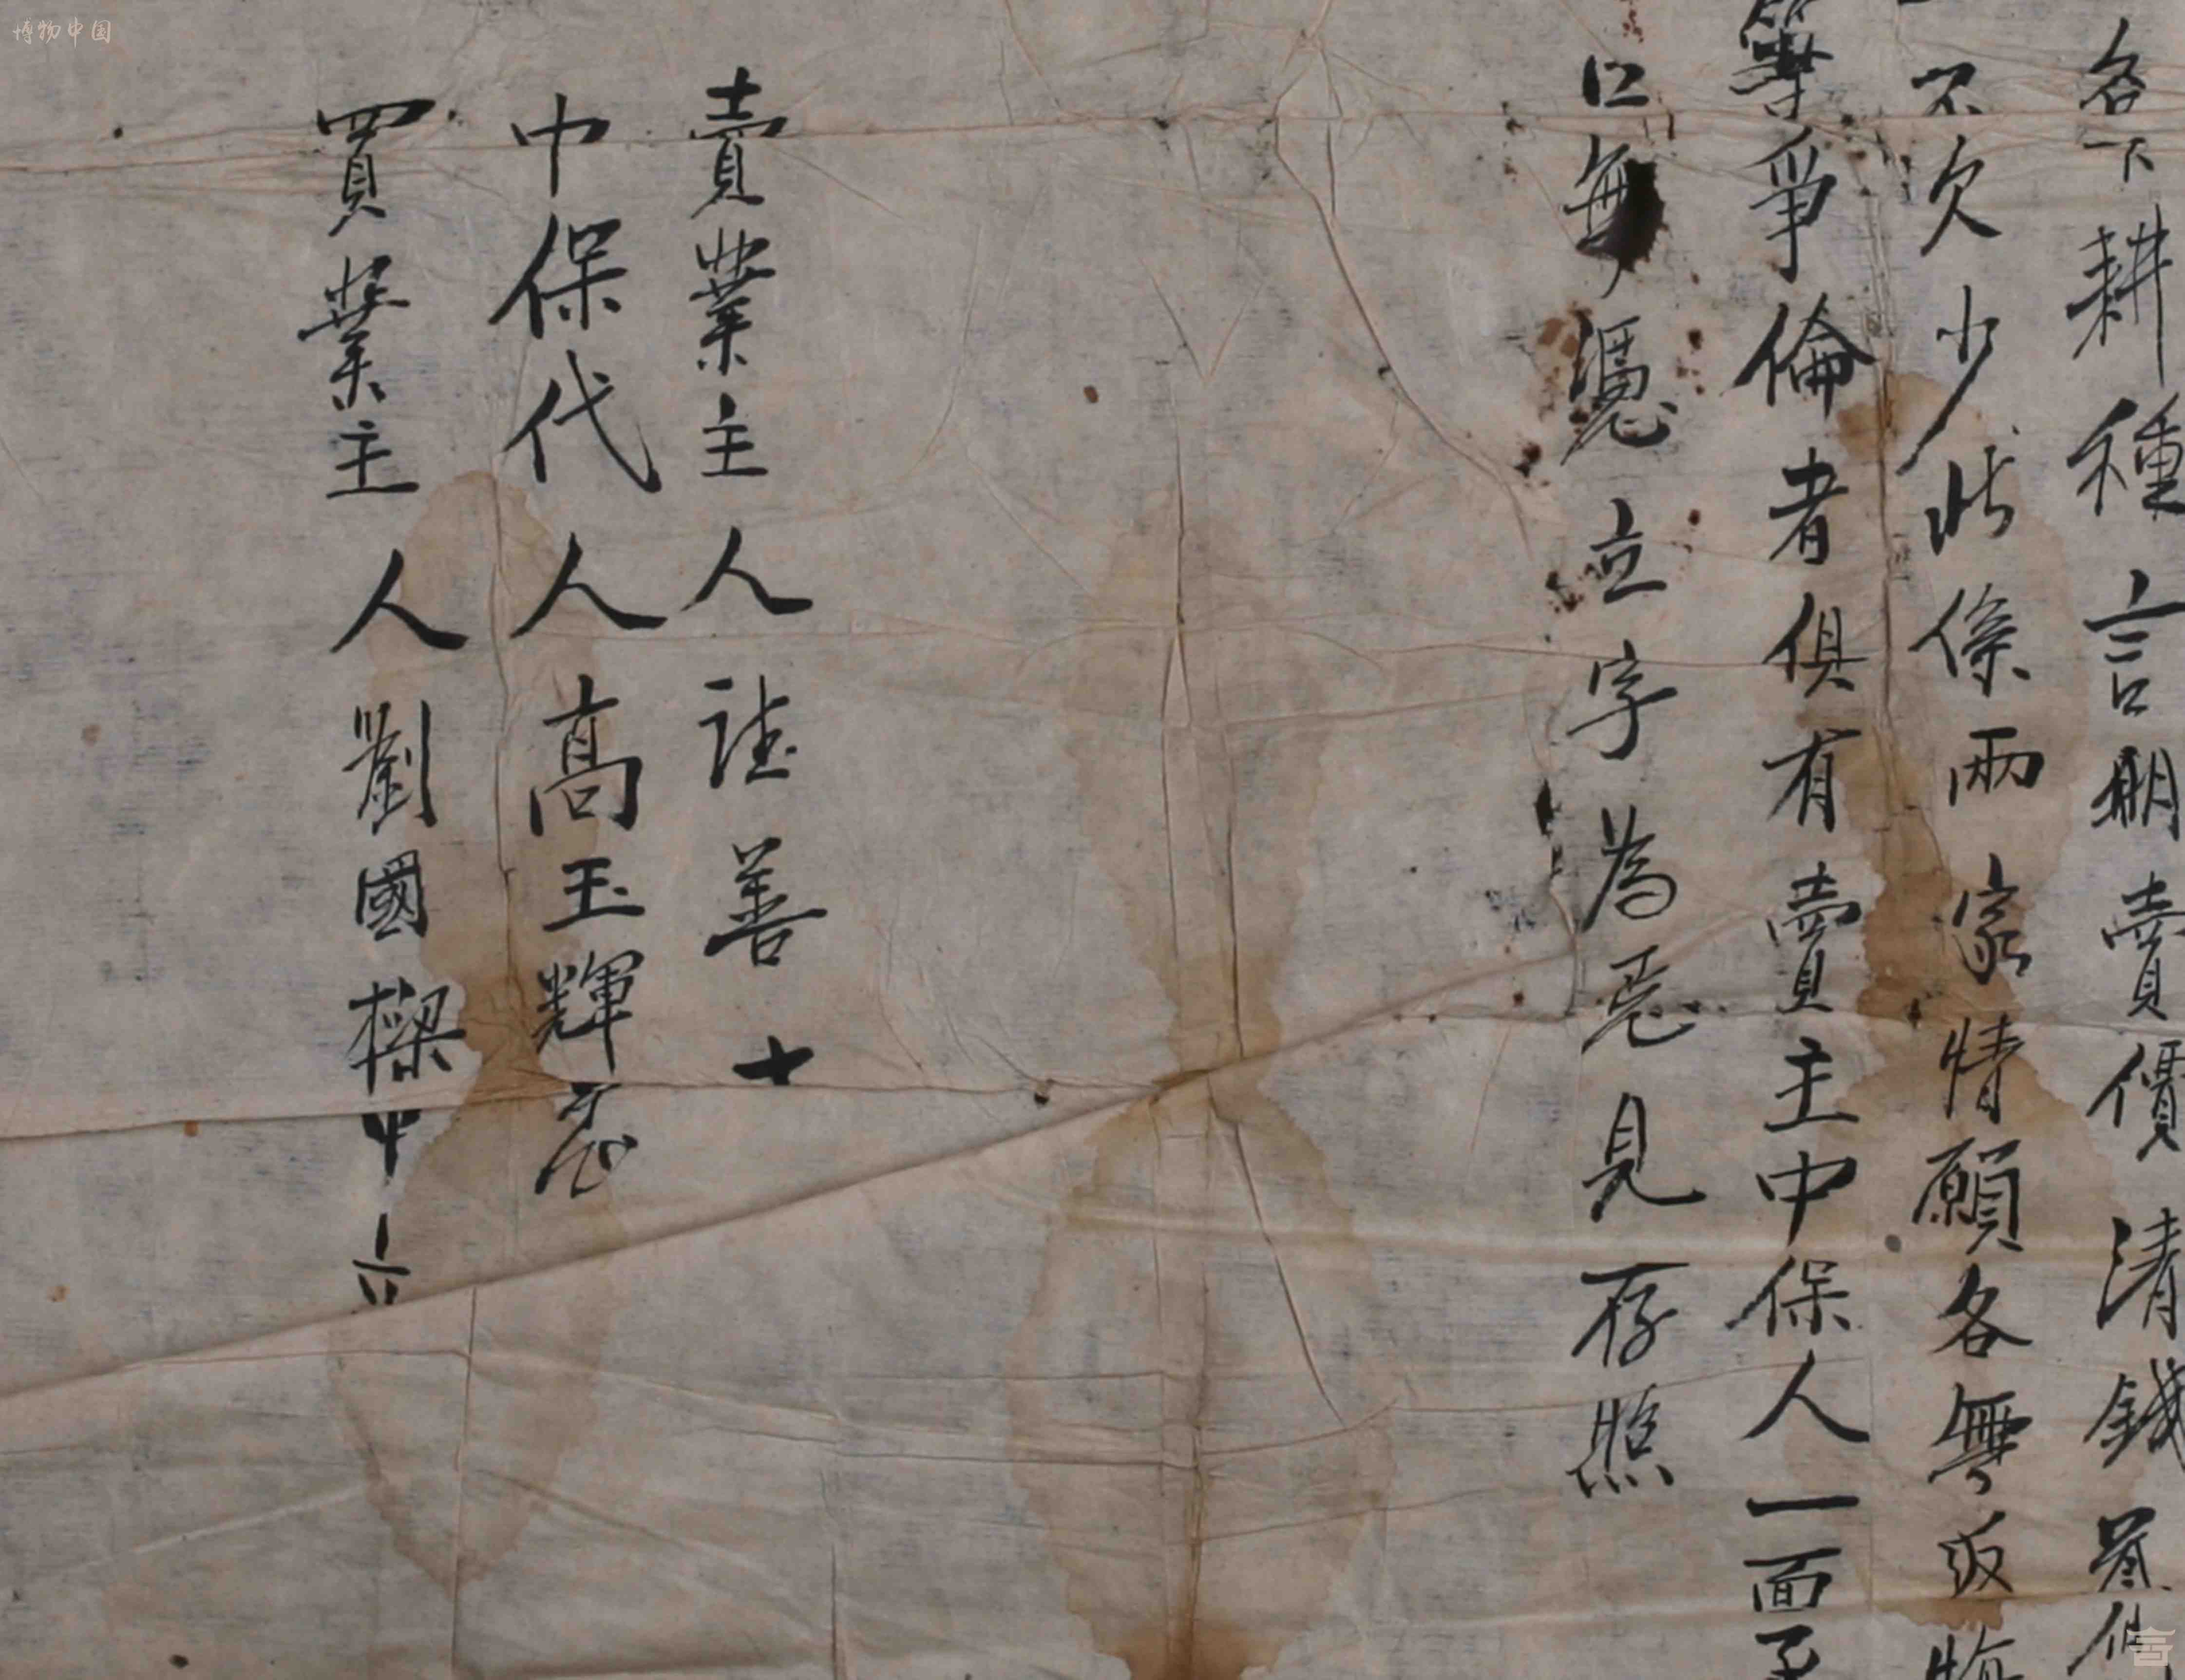 各下耕種言明賣價清錢
不欠少此係兩家情願各無返悔
等爭倫者俱有賣主中保人一面
口無憑立字為憑見存照
賣業主人 善十
中保代人高玉輝
買業主人劉國樑中
博物中国